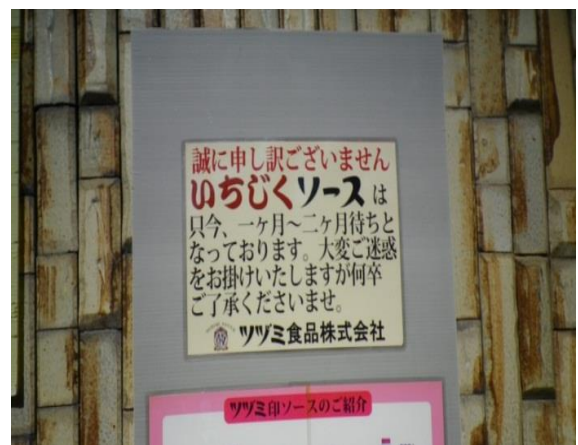 誠に申し訳ございません
いちじくソースは
只今、一ヶ月～二ヶ月待ちと
なっております。大変ご迷惑
をお掛けいたしますが何卒
ご了承くださいませ。
ツヅミ食品株式会社
ツヅミ印ソースのご紹介